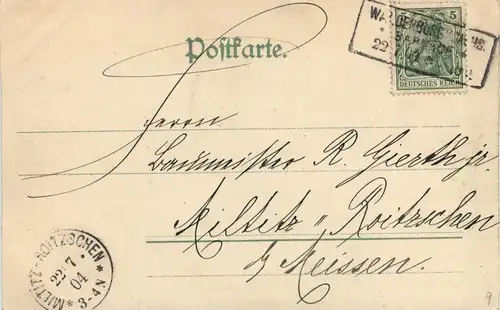 Postkarte.
5
DEUTSCHES REICH
22
Herrn
Baumeister R. Gierth jr.
Miltitz "Roitzschen
b/ Meissen.
MILTITZ-ROITZSCHEN
22 7
04
* 3-4 N *
9